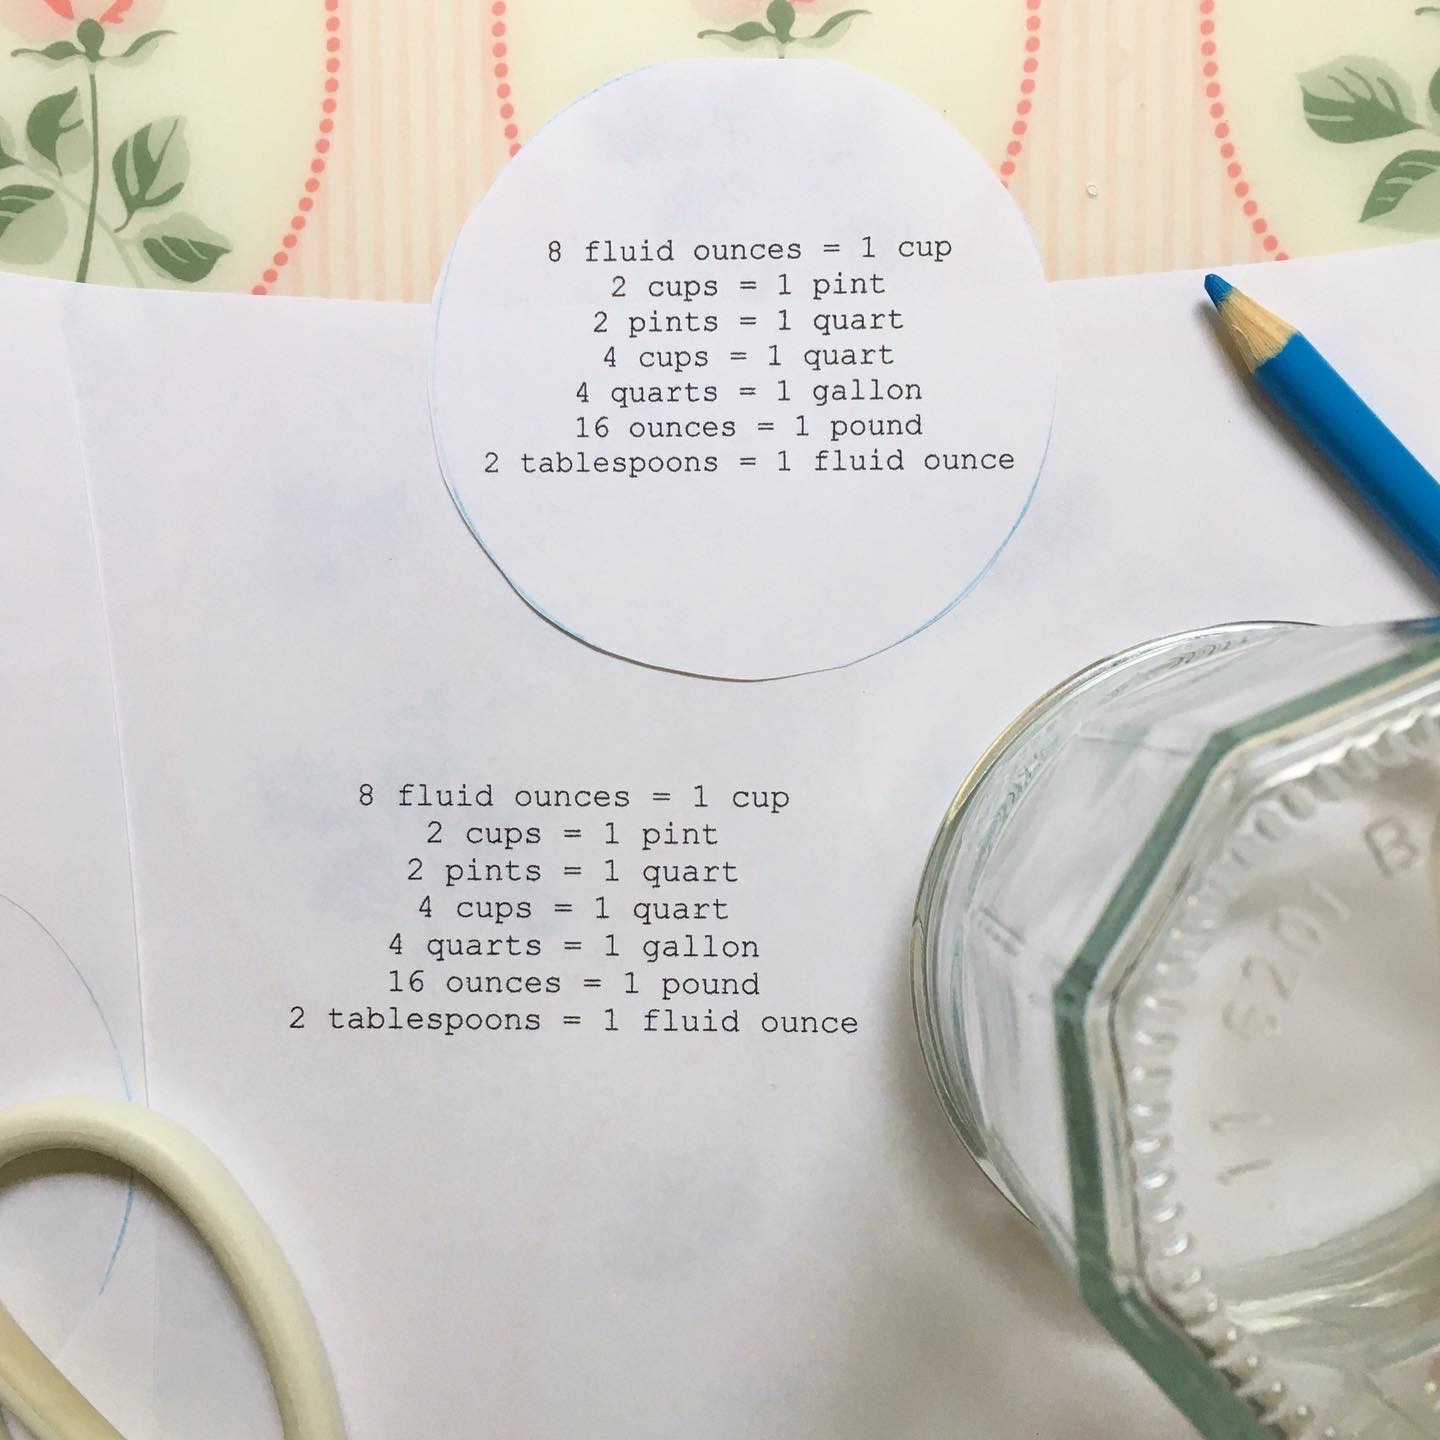 8 fluid ounces = 1 cup
2 cups = 1 pint
2 pints = 1 quart
4 cups = 1 quart
4 quarts = 1 gallon
16 ounces = 1 pound
2 tablespoons = 1 fluid ounce
8 fluid ounces = 1 cup
2 cups = 1 pint
2 pints = 1 quart
4 cups = 1 quart
4 quarts = 1 gallon
16 ounces = 1 pound
2 tablespoons = 1 fluid ounce